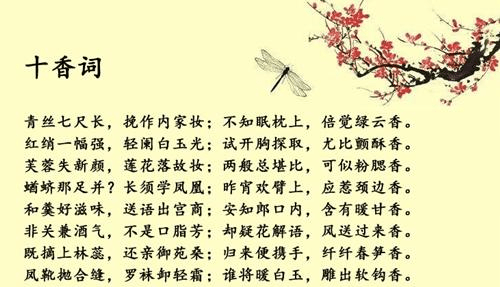 十香词
青丝七尺长，挽作内家妆；不知眠枕上，倍觉绿云香。
红绡一幅强，轻阑白玉光；试开胸探取，尤比颤酥香。
芙蓉失新颜，莲花落故妆；两般总堪比，可似粉腮香。
蝤蛴那足并？长须学凤凰；昨宵欢臂上，应惹颈边香。
和羹好滋味，送语出宫商；安知郎口内，含有暖甘香。
非关兼酒气，不是口脂芳；却疑花解语，风送过来香。
既摘上林蕊，还亲御苑桑；归来便携手，纤纤春笋香。
凤靴抛合缝，罗袜卸轻霜；谁将暖白玉，雕出软钩香。